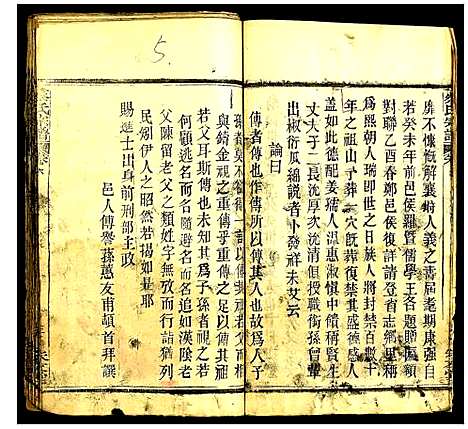 屏不慷慨解囊時人義之壽屆耄期康強自
若癸未年前邑侯羅暨儒學王各題贈匾額
對聯乙酉春鄭邑侯復詳請登省志鄉里群
為熙朝人瑞即世之日族人將封禁百數十
年之祖山予葬一穴既葬復禁其盛德感人
蓋如此德配姜孺人溫惠淑慎中饋稱賢生
丈夫子二長沈厚次沈清俱授職銜孫曾輩
出椒衍瓜綿說者卜發祥未艾云
論曰
傳者傳也作傳所以傳其人也故為人子
孫者莫不欲得一言以傳其祖若父而相
與鑄金視之重傳乎重傳之足以傳其祖
若父耳斯傳也未知其為子孫者視之若
何顧逃名而名隨避名而名追如漢陰老
父陳留老父之類姓字無攷而行詣猶列
民列伊人之昭然若揭如是耶
賜進士出身前刑部主政
邑人傅譽孫蕙友甫頓首拜譔
5.